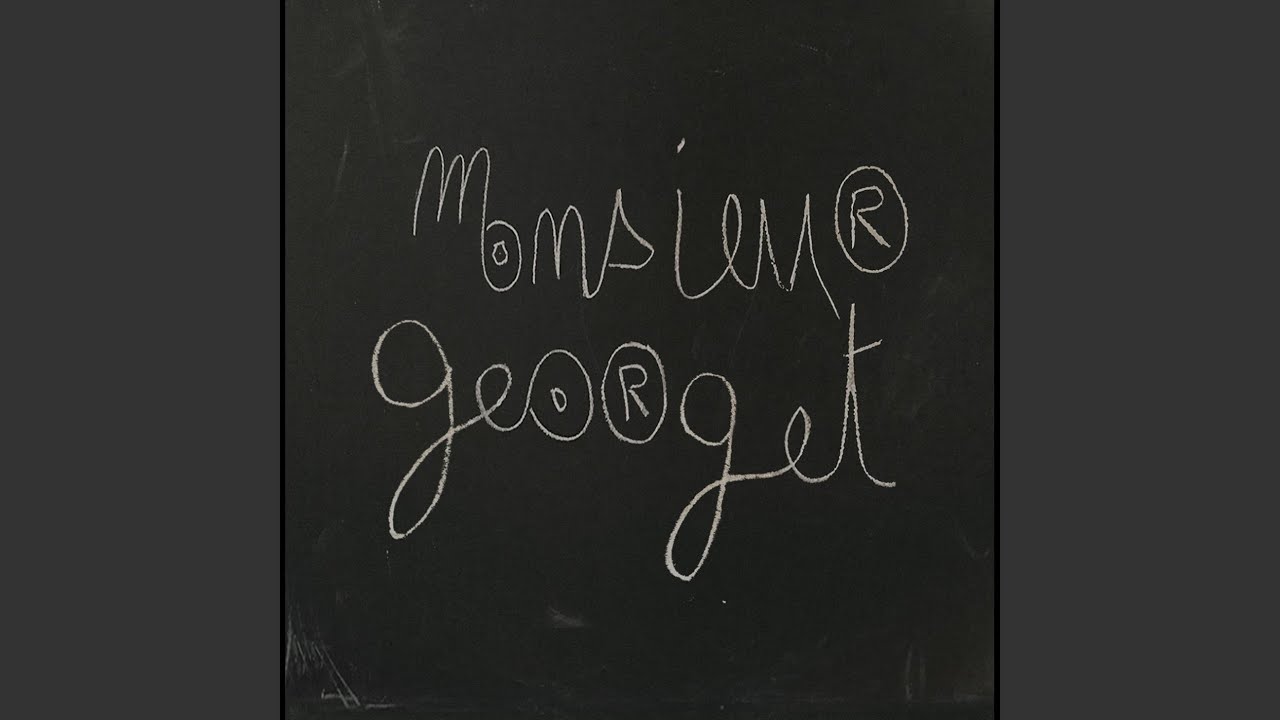 MonsieuR
geORget